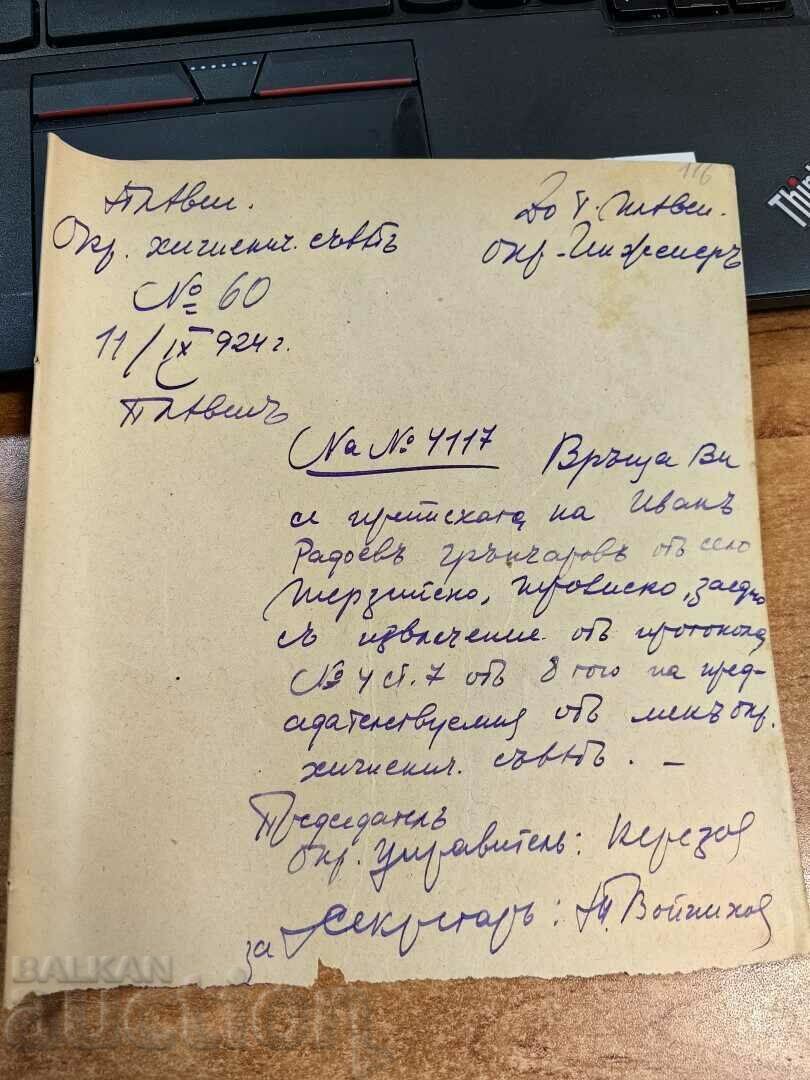 116
Плѣвен.
Окр. хигиенич. съвѣтъ
№ 60
11/IX 924 г.
Плѣвенъ
До Г. Плѣвен.
Окр. Инженеръ
На № 4117 Връща Ви
се преписката на Иванъ
Радоевъ Грънчаровъ отъ село
заедно
съ извлечение отъ протокола
№ 4 ст. 7 отъ 8 того на пред-
седателствуемия отъ менъ окр.
хигиенич. съвѣтъ. —
Председатель
Окр. Управитель:
за Секретарь:
Think
BALKAN
auction